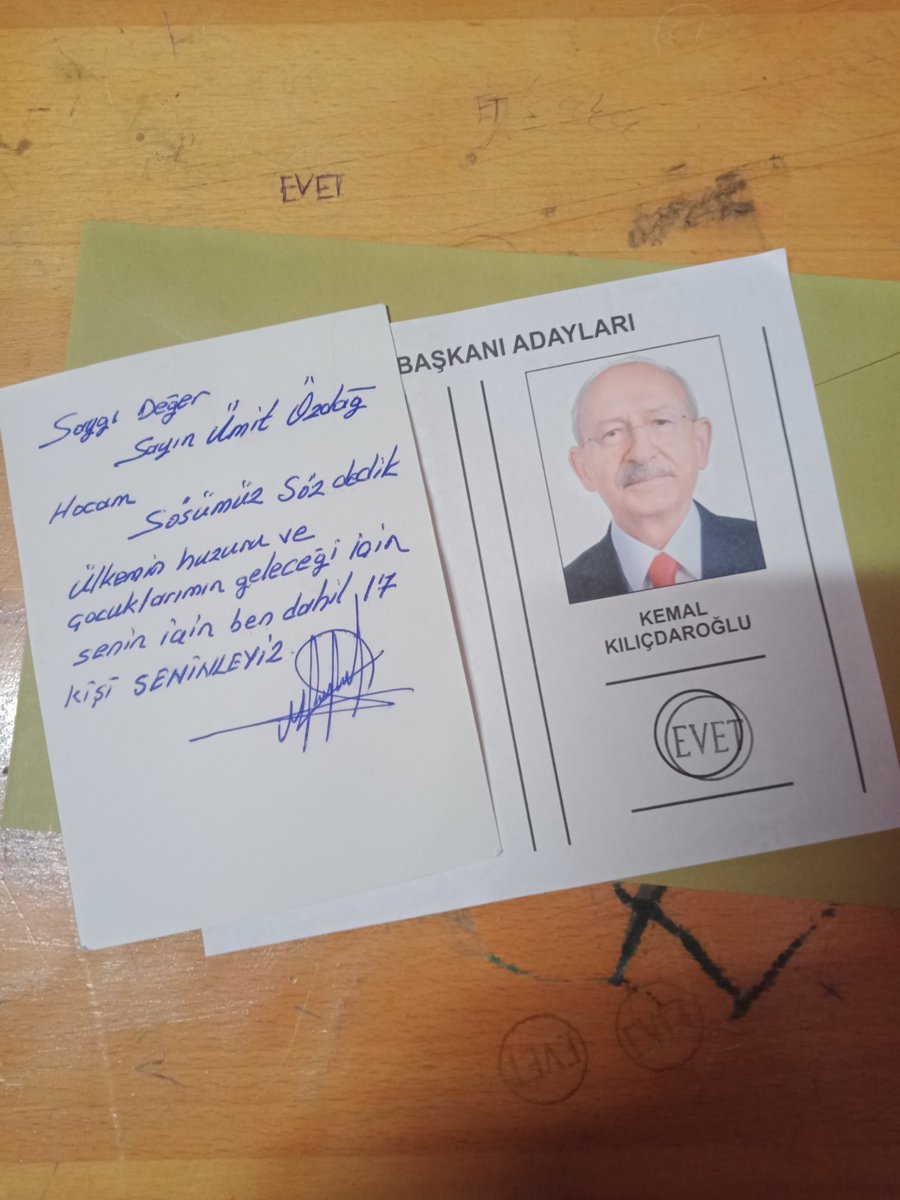 EVET
Saygı Değer
Sayın Ümit Özdağ
Hocam
Sösümüz Söz dedik
Ülkemin huzuru ve
çocuklarımın geleceği için
senin için ben dahil 17
kişi SENİNLEYİZ
BAŞKANI ADAYLARI
KEMAL
KILIÇDAROĞLU
EVET
EVET
EVET